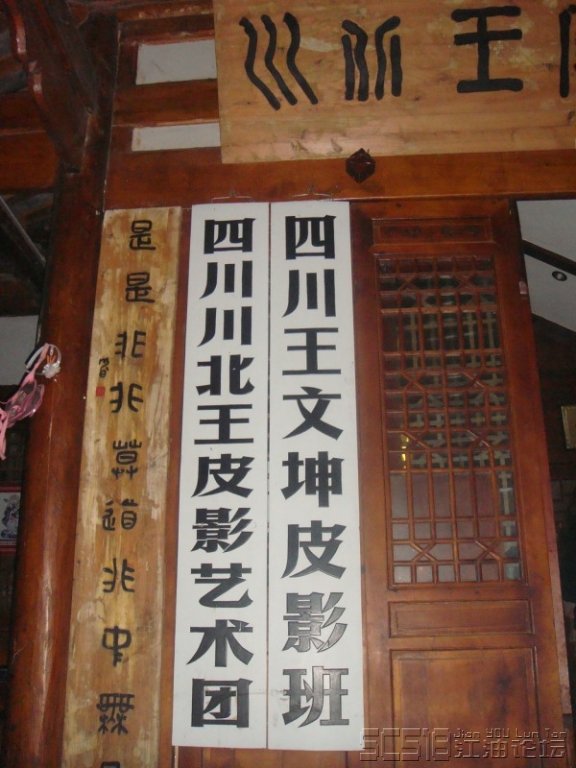 川北王
四川王文坤皮影班
四川川北王皮影艺术团
是是非非莫道非中無
江油论坛